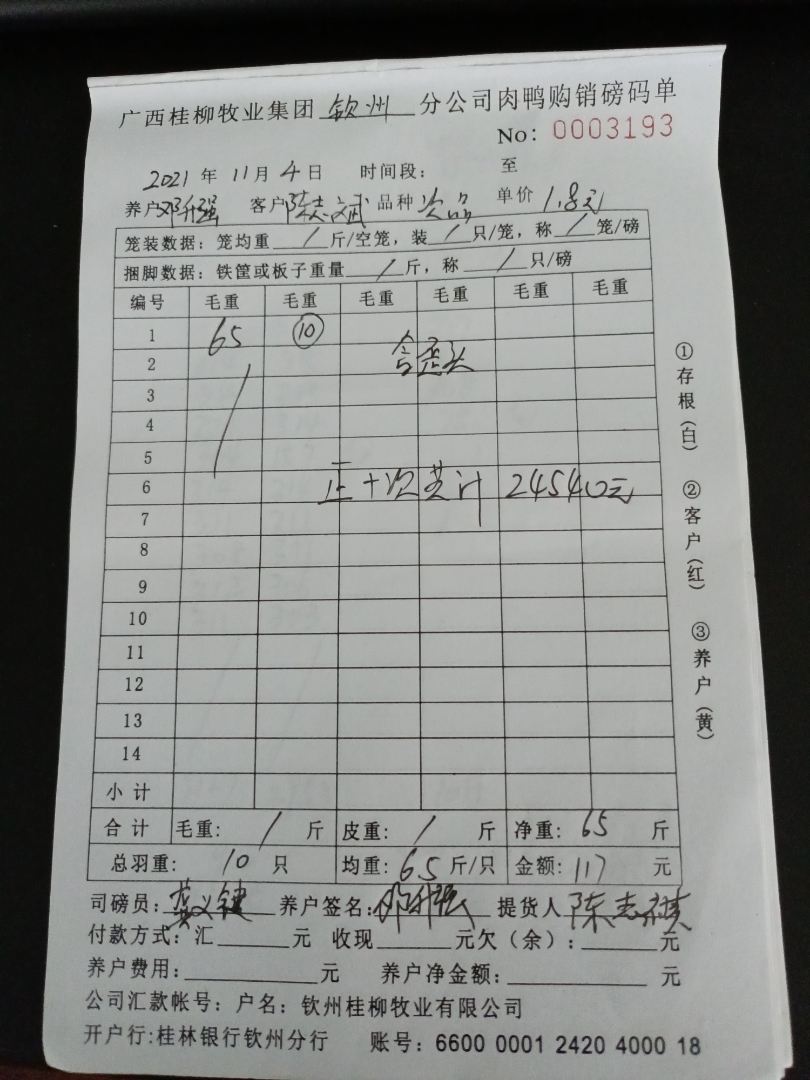 广西桂柳牧业集团 钦州 分公司肉鸭购销磅码单
No: 0003193
2021 年 11 月 4 日 时间段: 至
养户邓升强 客户陈志斌 品种次品 单价 1.8元
笼装数据: 笼均重 / 斤/空笼, 装 / 只/笼, 称 / 笼/磅
捆脚数据: 铁筐或板子重量 / 斤, 称 / 只/磅
编号 毛重 毛重 毛重 毛重 毛重 毛重
1 65 ⑩
2 含歪头
3
4
5
6 正十次共计 24540元
7
8
9
10
11
12
13
14
小计
合计 毛重: / 斤 皮重: / 斤 净重: 65 斤
总羽重: 10 只 均重: 6.5 斤/只 金额: 117 元
司磅员: 养户签名: 邓升强 提货人 陈志
付款方式: 汇 元 收现 元欠(余): 元
养户费用: 元 养户净金额: 元
公司汇款帐号: 户名: 钦州桂柳牧业有限公司
开户行:桂林银行钦州分行 账号: 6600 0001 2420 4000 18
①存根(白) ②客户(红) ③养户(黄)